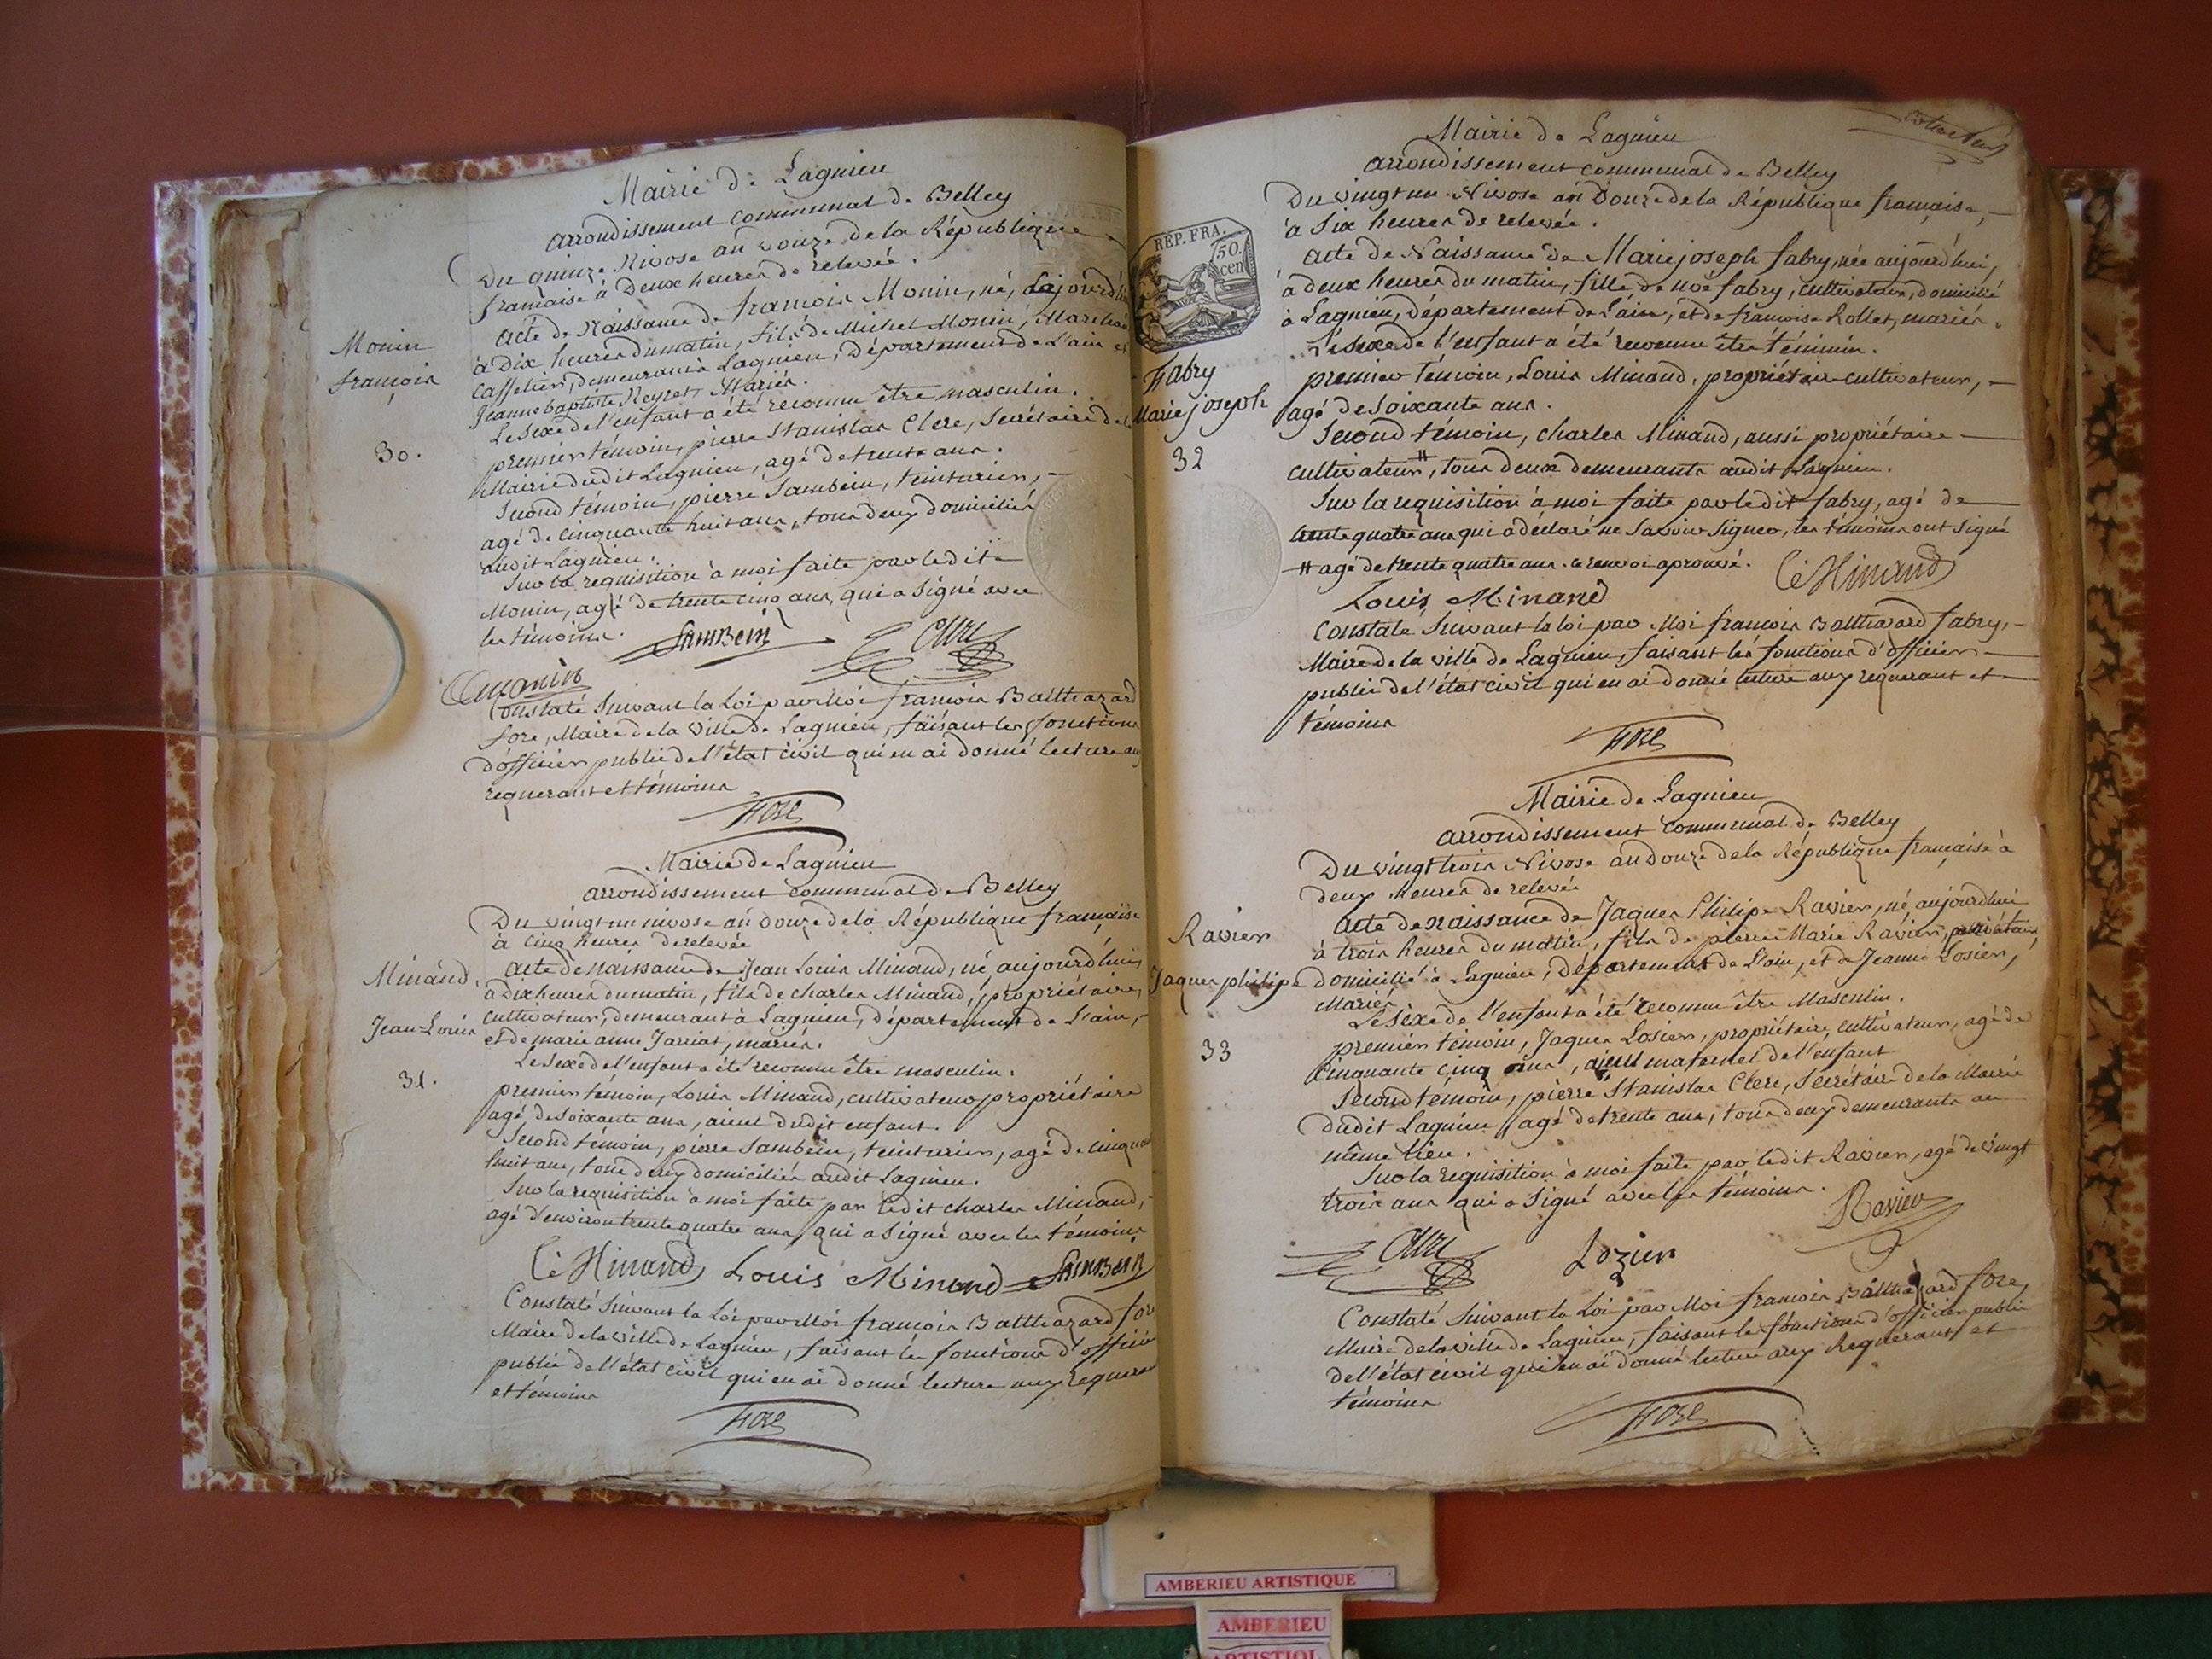 Mairie de Lagnieu
arrondissement communal de Belley
Du quinze Nivose an douze de la République
française à Deux heures de relevée.
acte de Naissance de françois Monin, né, aujourd'hui
à Dix heures du matin, fils de Michel Monin, Marchand
demeurant à Lagnieu, Département de L'ain et
Jeanne baptiste Reyret, Mariés.
Le sexe de l'enfant a été reconnu être masculin.
premier témoin, pierre Stanislas Clerc, Secrétaire de la
Mairie dudit Lagnieu, agé de trente ans.
Second témoin, pierre Sambein, teinturier, —
agé de cinquante huit ans, tous deux domiciliés
audit Lagnieu.
Sur la requisition à moi faite par ledit
Monin, agé de trente cinq ans, qui a signé avec
les témoins.
Monin
françois
30.
Sambein
Clerc
Constaté suivant la Loi par Moi françois Balthazard
fore, Maire de la ville de Lagnieu, faisant les fonctions
d'officier public de l'état civil qui en ai donné lecture aux
requerant et témoins
Fore
Mairie de Lagnieu
arrondissement communal de Belley
Du vingt un nivose an douze de la République française
à cinq heures de relevée
acte de naissance de Jean Louis Minand, né aujourd'hui
à dix heures du matin, fils de charles Minand, propriétaire,
cultivateur, demeurant à Lagnieu, département de L'ain, —
et de marie anne Jarriat, mariés.
Le sexe de l'enfant a été reconnu être masculin.
premier témoin, Louis Minand, cultivateur propriétaire
agé de soixante ans, aieul dudit enfant.
Second témoin, pierre Sambein, teinturier, agé de cinquante
huit ans, tous deux domiciliés audit Lagnieu.
Sur la requisition à moi faite par ledit charles Minand, —
agé d'environ trente quatre ans, qui a signé avec les témoins
Minand,
Jean-Louis
31.
C Minand Louis Minand Sambein
Constaté suivant la Loi par Moi françois Balthazard fore
Maire de la ville de Lagnieu, faisant les fonctions d'officier
public de l'état civil qui en ai donné lecture aux requerant
et témoins
Fore
Mairie de Lagnieu
arrondissement communal de Belley
Du vingt un Nivose an Douze de la République française, —
à Six heures de relevée.
acte de Naissance de Marie joseph fabry, née aujourd'hui,
à deux heures du matin, fille de noé fabry, cultivateur, domicilié
à Lagnieu, Département de L'ain, et de francoise Rollet, mariés.
Le sexe de l'enfant a été reconnu être féminin.
premier témoin, Louis Minand, propriétaire cultivateur, —
agé de soixante ans.
Second témoin, charles Minand, aussi propriétaire —
cultivateur #, tous deux demeurants audit Lagnieu.
Sur la requisition à moi faite par ledit fabry, agé de —
trente quatre ans qui a déclaré ne savoir signer, les témoins ont signé
# agé de trente quatre ans. ce renvoi aprouvé.
REP. FRA.
50. cen
Fabry
Marie joseph
32
C Minand
Louis Minand
Constaté suivant la loi par Moi françois Balthazard fabry, —
Maire de la ville de Lagnieu, faisant les fonctions d'officier —
public de l'état civil qui en ai donné lecture aux requerant et —
témoins
Fore
Mairie de Lagnieu
arrondissement communal de Belley
Du vingt trois Nivose an douze de la République française à
deux heures de relevée
acte de naissance de Jaques Philipe Ravier, né aujourd'hui
à trois heures du matin, fils de pierre Marie Ravier, propriétaire,
domicilié à Lagnieu, Département de L'ain, et de Jeanne Losier,
Mariés.
Le sexe de l'enfant a été reconnu être Masculin.
premier témoin, Jaques Losier, propriétaire, cultivateur, agé de
Cinquante cinq ans, aieul maternel de l'enfant
Second témoin, pierre Stanislas Clerc, Secrétaire de la Mairie
dudit Lagnieu, agé de trente ans, tous deux demeurants au
même lieu.
Sur la requisition à moi faite par ledit Ravier, agé de vingt
trois ans qui a signé avec les témoins.
Ravier
Jaques philipe
33
Ravier
Clerc Lozier
Constaté suivant la Loi par Moi françois Balthazard fore,
Maire de la ville de Lagnieu, faisant les fonctions d'officier public
de l'état civil qui en ai donné lecture aux Requerant et
témoins
Fore
AMBERIEU ARTISTIQUE
AMBERIEU
ARTISTIQ